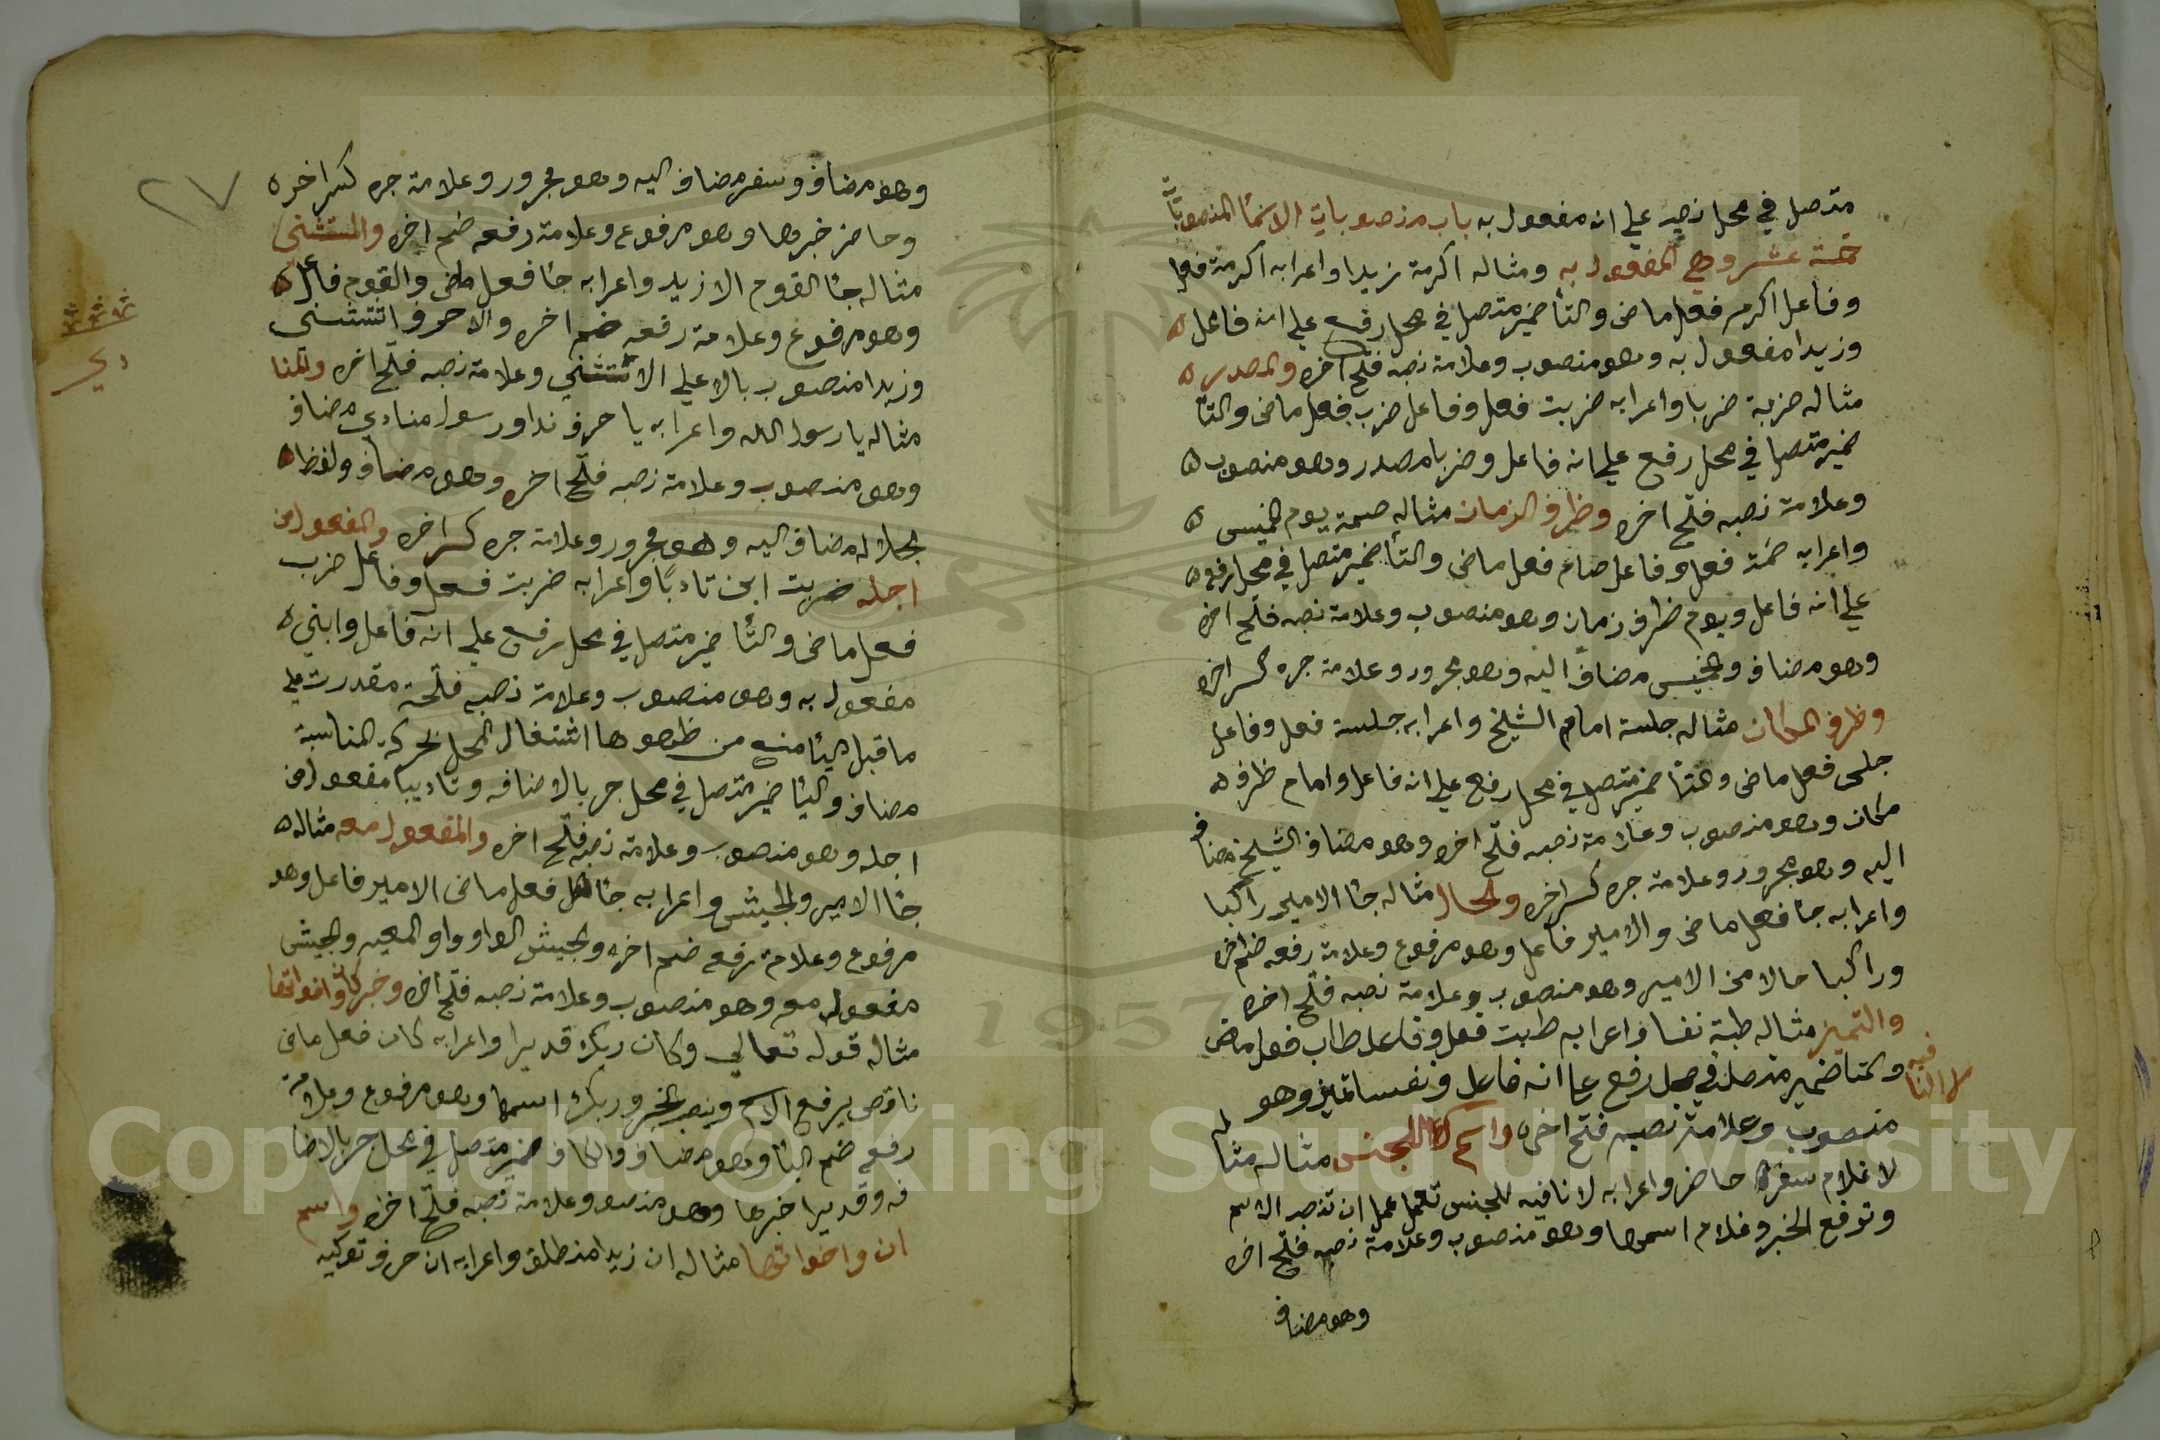 متصل في محل نصب علي انه مفعول به باب منصوبات الاسما المنصوبات
خمسة عشر وهي المفعول به ومثاله اكرمة زيدا واعرابه اكرمة فعل
وفاعل اكرم فعل ماضي والتا ضمير متصل في محل رفع علي انه فاعل ه
وزيدا مفعول به وهو منصوب وعلامة نصبه فتح اخره والمصدر ه
مثاله ضربة ضربا واعرابه ضربت فعل وفاعل ضرب فعل ماضي والتا
ضمير متصل في محل رفع علي انه فاعل وضربا مصدر وهو منصوب ه
وعلامة نصبه فتح اخره وظرف الزمان مثاله صمة يوم الخميس ه
واعرابه صمة فعل وفاعل صام فعل ماضي والتا ضمير متصل في محل رفع ه
علي انه فاعل ويوم ظرف زمان وهو منصوب وعلامة نصبه فتح اخره
وهو مضاف والخميس مضاف اليه وهو مجرور وعلامة جره كسر اخره
وظرف المكان مثاله جلسة امام الشيخ واعرابه جلسة فعل وفاعل
جلس فعل ماضي والتا ضمير متصل في محل رفع علي انه فاعل وامام ظرف ه
مكان وهو منصوب وعلامة نصبه فتح اخره وهو مضاف الشيخ مضاف
اليه وهو مجرور وعلامة جره كسر اخره والحال مثاله جا الامير راكبا
واعرابه جا فعل ماضي والامير فاعل وهو مرفوع وعلامة رفعه ضم اخره
وراكبا حالا من الامير وهو منصوب وعلامة نصبه فتح اخره
والتميز مثاله طبة نفسا واعرابه طبت فعل وفاعل طاب فعل ماضي
والتا ضمير متصل في محل رفع علي انه فاعل ونفسا تميز وهو
منصوب وعلامة نصبه فتح اخره واسم لا النافيه للجنس مثاله مثاله
لا غلام سفر حاضر واعرابه لا نافيه للجنس تعمل عمل ان تنصب الاسم
وترفع الخبر وغلام اسمها وهو منصوب وعلامة نصبه فتح اخره
وهو مضاف
٢٧
وهو مضاف وسفر مضاف اليه وهو مجرور وعلامة جره كسر اخره
وحاضر خبرها وهو مرفوع وعلامة رفعه ضم اخره والمستثني
مثاله جا القوم الا زيد واعرابه جا فعل ماضي والقوم فاعل ه
وهو مرفوع وعلامة رفعه ضم اخره والا حرف استثني
وزيدا منصوب بالا علي الاستثني وعلامة نصبه فتح اخره والمنا
مثاله يا رسول الله واعرابه يا حرف ندا ورسول منادي مضاف
وهو منصوب وعلامة نصبه فتح اخره وهو مضاف ولفظ ه
الجلاله مضاف اليه وهو مجرور وعلامة جره كسر اخره والمفعول من
اجله ضربت ابني تاديبا واعرابه ضربت فعل وفاعل ضرب
فعل ماضي والتا ضمير متصل في محل رفع علي انه فاعل وابني ه
مفعول به وهو منصوب وعلامة نصبه فتحة مقدرت علي
ما قبل اليا منع من ظهورها اشتغال المحل بحركة المناسبة
مضاف واليا ضمير متصل في محل جر بالاضافه وتاديبا مفعول من
اجله وهو منصوب وعلامة نصبه فتح اخره والمفعول معه مثاله ه
جا الامير والجيش واعرابه جا فعل ماضي الامير فاعل وهو
مرفوع وعلامة رفعه ضم اخره والجيش الواو واو المعيه والجيش
مفعول معه وهو منصوب وعلامة نصبه فتح اخره وخبر كان واخواتها
مثاله قوله تعالي وكان ربك قديرا واعرابه كان فعل ماضي
ناقص يرفع الاسم وينصب الخبر وربك اسمها وهو مرفوع وعلامة
رفعه ضم البا وهو مضاف والكاف ضمير متصل في محل جر بالاضا
فه وقديرا خبرها وهو منصوب وعلامة نصبه فتح اخره واسم
ان واخواتها مثاله ان زيدا منطلق واعرابه ان حرف توكيد
Copyright © King Saud University
1957